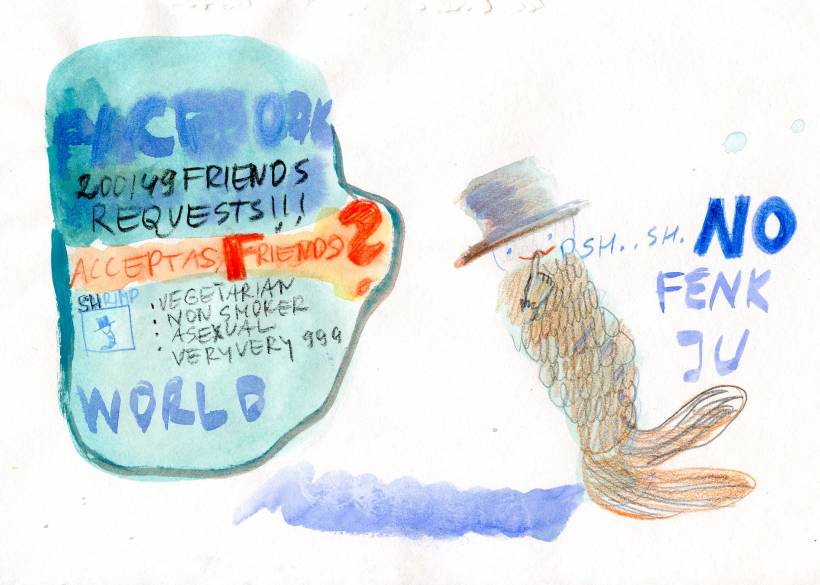 FACEBOOK
200149 FRIENDS
REQUESTS!!!
ACCEPT AS FRIENDS?
SHRIMP
:VEGETARIAN
NON SMOKER
: ASEXUAL
VERY VERY 999
WORLD
PSH.. SH.
NO
FENK
JU